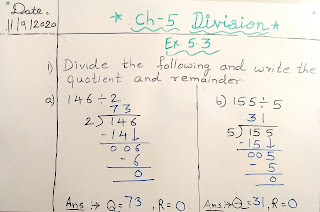 Date.
11/9/2020
★ Ch-5 Division ★
Ex. 5.3
1) Divide the following and write the
quotient and remainder.
a) 146÷2
73
2)146
-14↓
006
-6
0
Ans :→ Q=73, R=0.
b) 155÷5
31
5)155
-15↓
005
- 5
0
Ans:→Q=31, R=0.